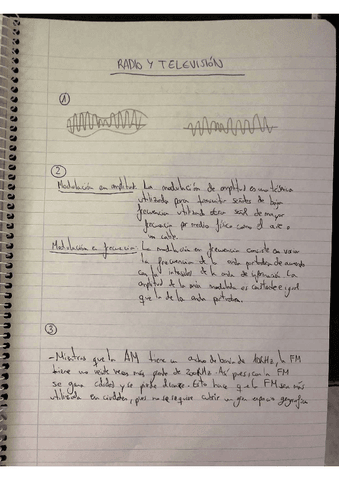 RADIO Y TELEVISIÓN
1
2
Modulación en amplitud: La modulación de amplitud es una técnica
utilizada para transmitir señales de baja
frecuencia utilizando otra señal de mayor
frecuencia por medio físico como el aire o
un cable.
Modulación en frecuencia: La modulación en frecuencia consiste en variar
la frecuencia de la onda portadora de acuerdo
con la intensidad de la onda de información. La
amplitud de la onda modulada es constante e igual
que la de la onda portadora.
3
- Mientras que la AM tiene un ancho de banda de 10KHz, la FM
tiene veces más 200KHz. Así pues, con la FM
se gana calidad y se pierde alcance. Esto hace que la FM sea más
utilizada en ciudades, pues no se requiere cubrir un gran espacio geográfico